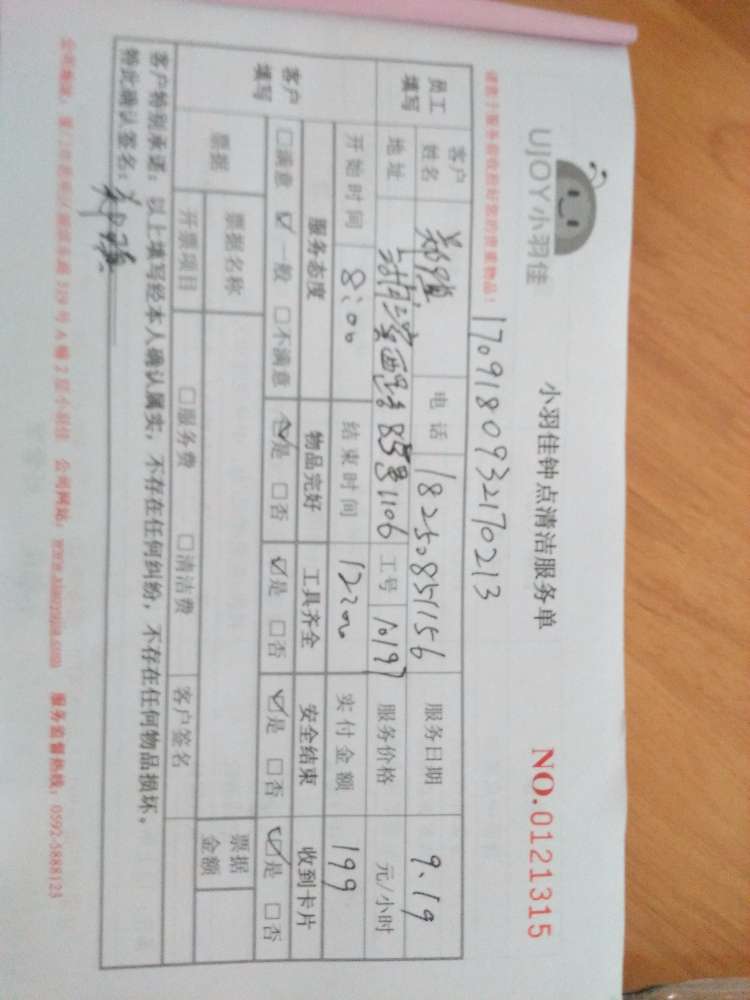 UJOY小羽佳
小羽佳钟点清洁服务单
NO.0121315
1709180932170213
请客户服务前收拾好您的贵重物品!
员工填写 客户姓名 郑 电话 18250851156 服务日期 9.19
地址 85号1106 工号 10197 服务价格 元/小时
开始时间 8:00 结束时间 12:00 实付金额 199
客户填写 服务态度 物品完好 工具齐全 安全结束 收到卡片
□满意 ☑一般 □不满意 ☑是 □否 ☑是 □否 ☑是 □否 ☑是 □否
票据 票据名称 票据金额
开票项目 □服务费 □清洁费 客户签名
客户特别承诺:以上填写经本人确认属实,不存在任何纠纷,不存在任何物品损坏。
特此确认签名:
公司地址:厦门市 329号A幢2层小羽佳 公司网站:www.xiaoyujia.com 服务监督热线:0592-5888123